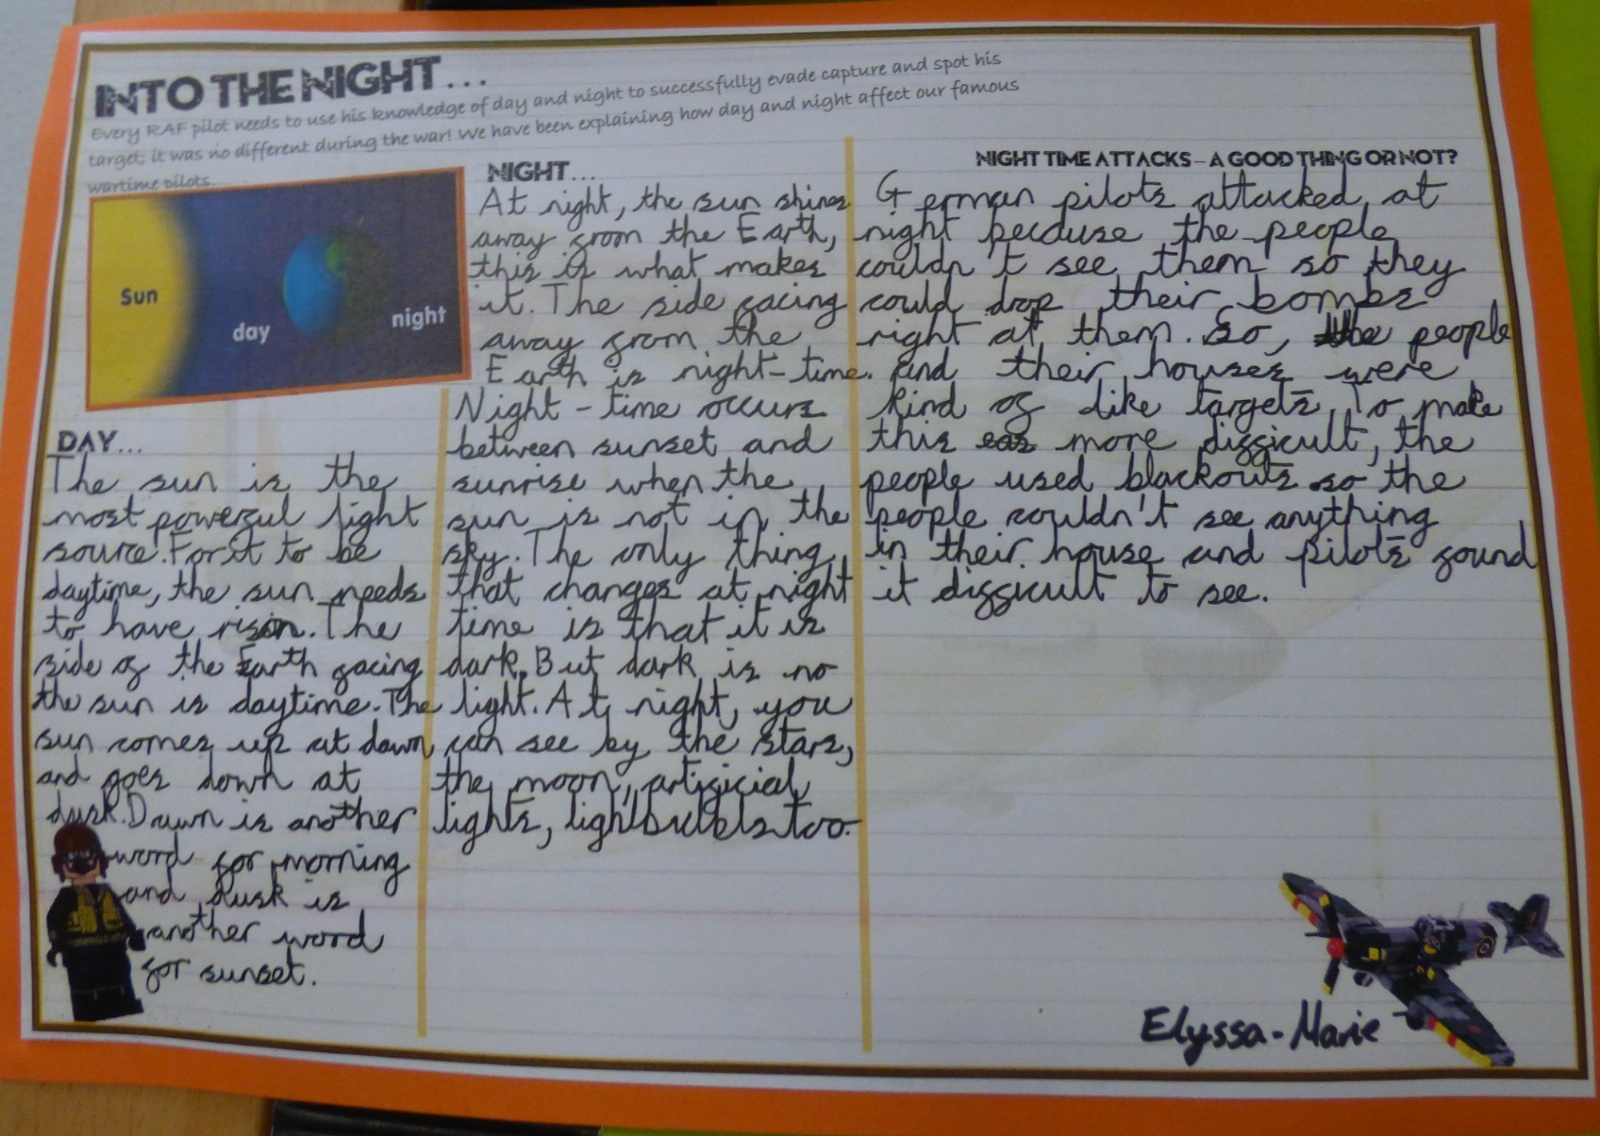 INTO THE NIGHT...
Every RAF pilot needs to use his knowledge of day and night to successfully evade capture and spot his
target; it was no different during the war! We have been explaining how day and night affect our famous
wartime pilots.
Sun
day
night
DAY...
The sun is the
most powerful light
source. For it to be
daytime, the sun needs
to have risen. The
side of the Earth facing
the sun is daytime. The
sun comes up at dawn,
and goes down at
dusk. Dawn is another
word for morning
and dusk is
another word
for sunset.
NIGHT...
At night, the sun shines
away from the Earth,
this is what makes
it. The side facing
away from the
Earth is night-time.
Night-time occurs
between sunset and
sunrise when the
sun is not in the
sky. The only thing
that changes at night
time is that it is
dark. But dark is no
light. At night, you
can see by the stars,
the moon, artificial
lights, lightbulbs too.
NIGHT TIME ATTACKS – A GOOD THING OR NOT?
German pilots attacked at
night because the people
couldn't see them so they
could drop their bombs
right at them. So, the people
and their houses were
kind of like targets. To make
this more difficult, the
people used blackouts so the
people couldn't see anything
in their house and pilots found
it difficult to see.
Elyssa-Marie